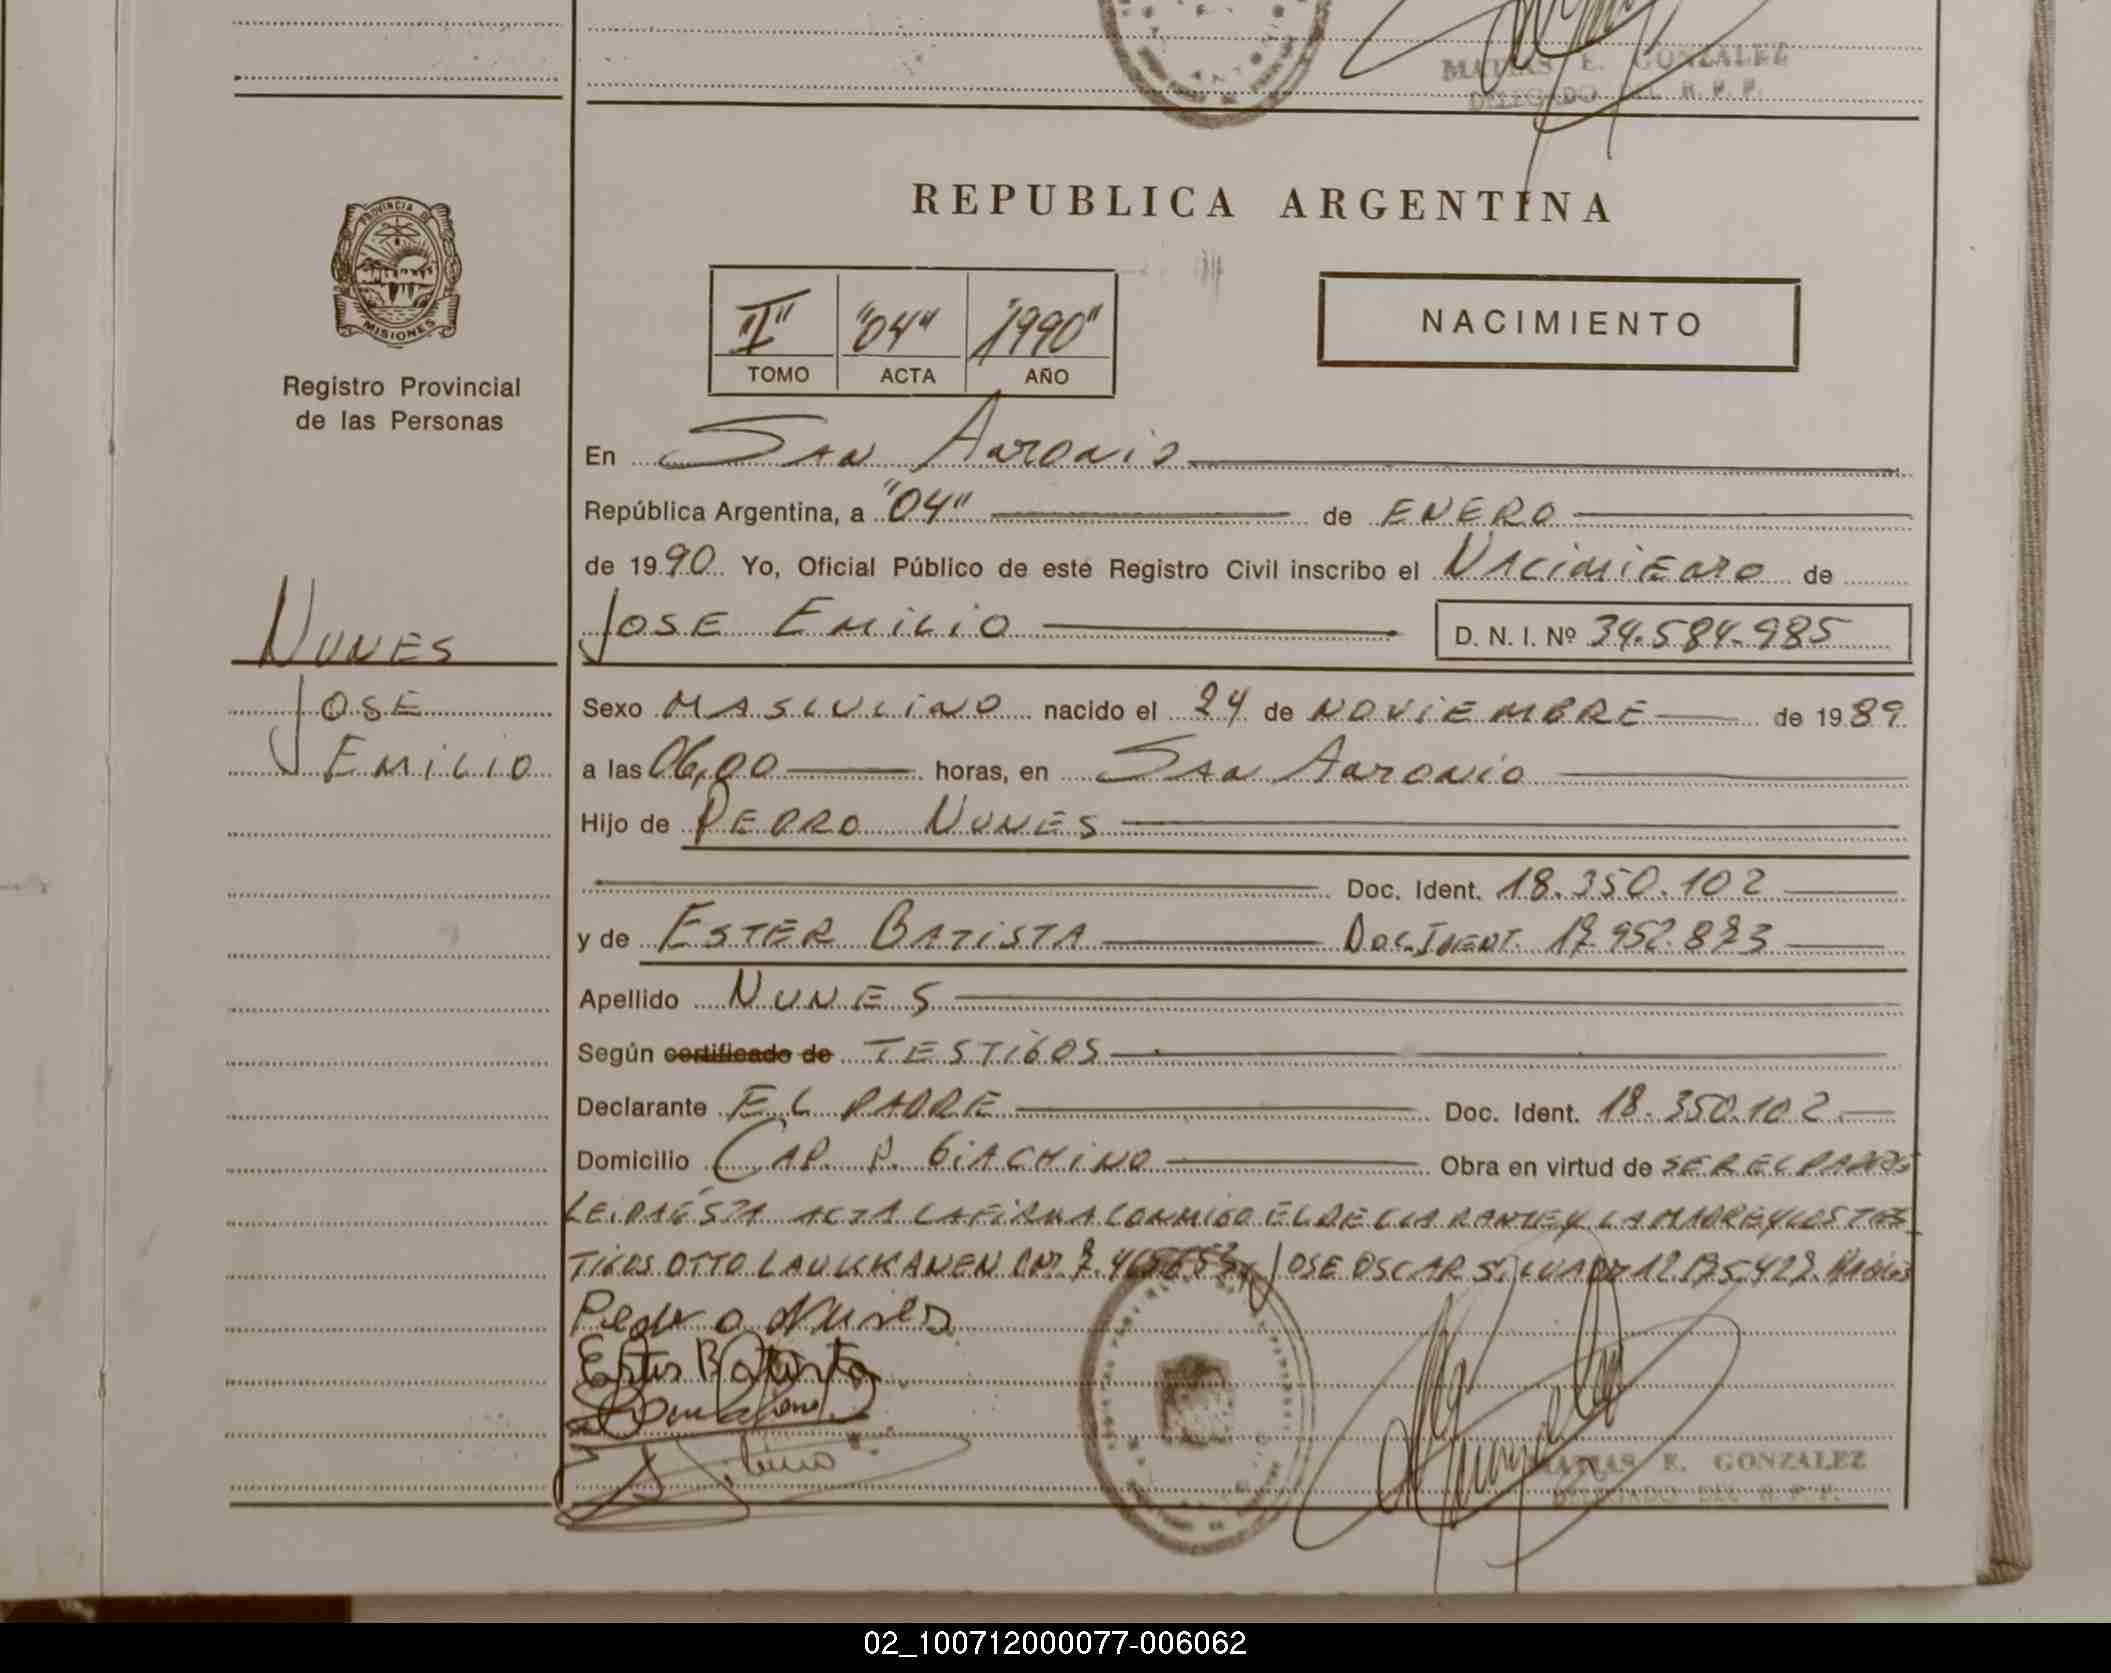 MATIAS E. GONZALEZ
DELEGADO DEL R. P. P.
REPUBLICA ARGENTINA
PROVINCIA DE
MISIONES
Registro Provincial
de las Personas
"II" "04" "1990"
TOMO ACTA AÑO
NACIMIENTO
En San Antonio
República Argentina, a "04" de ENERO
de 1990 Yo, Oficial Público de este Registro Civil inscribo el Nacimiento de
JOSE EMILIO D. N. I. Nº 34.584.985
NUNES
JOSE
EMILIO
Sexo MASCULINO nacido el 24 de NOVIEMBRE de 1989
a las 06,00 horas, en San Antonio
Hijo de PEDRO NUNES
Doc. Ident. 18.350.102
y de ESTER BATISTA Doc. Ident. 17.952.873
Apellido NUNES
Según certificado de TESTIGOS
Declarante EL PADRE Doc. Ident. 18.350.102
Domicilio CAP. P. GIACHINO Obra en virtud de SER EL PADRE
LEIDA ÉSTA ACTA LA FIRMA CONMIGO EL DECLARANTE Y LA MADRE Y LOS TES
TIGOS OTTO LAUKKANEN DNI 7. JOSE OSCAR SILVA DNI 12.175.427.
Pedro Nunes
Ester Batista
MATIAS E. GONZALEZ
DELEGADO DEL R. P. P.
02_100712000077-006062